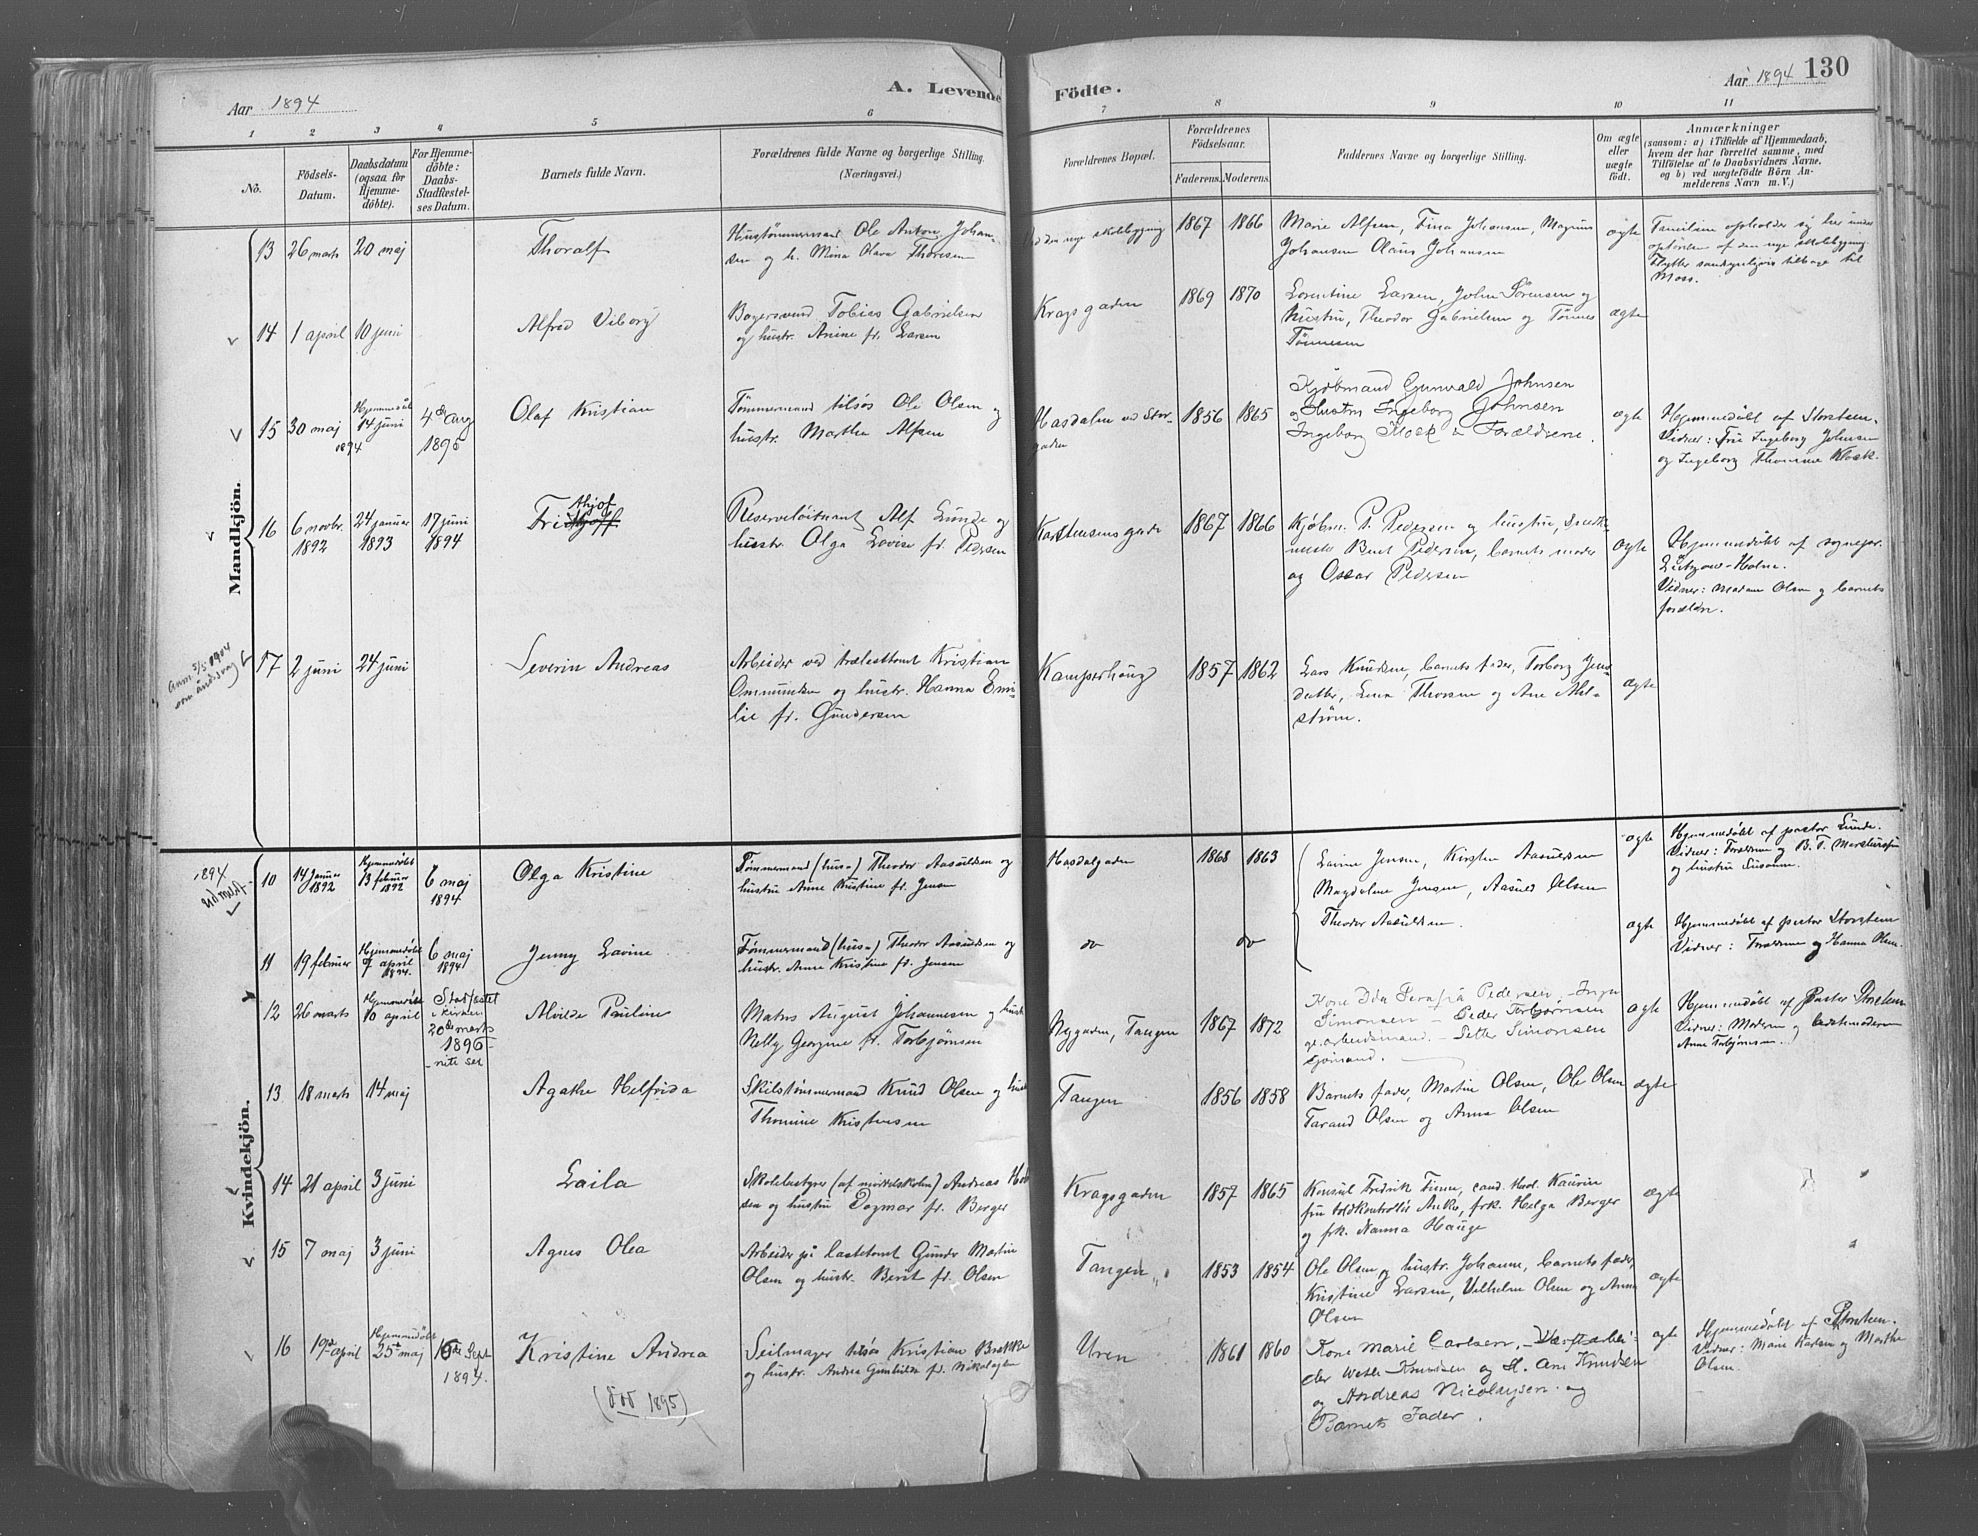 Aar 1894
A. Levende Födte.
Aar 1894 130
1 2 3 4 5 6 7 8 9 10 11
No.
Födsels-
Datum.
Daabsdatum
(ogsaa for
Hjemme-
döbte).
For Hjemme-
döbte:
Daabs-
Stadfæstel-
ses Datum.
Barnets fulde Navn.
Forældrenes fulde Navne og borgerlige Stilling.
(Næringsvei.)
Forældrenes Bopæl.
Forældrenes
Födselsaar.
Faderens. Moderens.
Faddernes Navne og borgerlige Stilling.
Om ægte
eller
uægte
födt.
Anmærkninger
(saasom: a) i Tilfælde af Hjemmedaab,
hvem der har forrettet samme, med
Tilföielse af to Daabsvidners Navne,
og b) ved uægtefödte Börn An-
melderens Navn m. V.)
Mandkjön.
13 26 marts 20 maj Thoralf
Hustømmermand Ole Anton Johan-
sen og h. Mina Olava Thoresen
Ved den nye skolebygning
1867 1866
Marie Alfsen, Tina Johansen, Magnus
Johansen Olaus Johansen
ægte
Familien opholder sig her under
opførelsen af den nye skolebygning
flytter sandsynligvis tilbage til
Moss.
14 1 april 10 juni Alfred Viborg
Bagersvend Tobias Gabrielsen
og hustr. Anine f. Larsen
Kragsgaden
1869 1870
Lorentine Larsen, John Sørensen og
hustru, Theodor Gabrielsen og Tønnes
Tønnesen
ægte
15 30 maj 1894 Hjemmedøbt 14 juni 4de aug 1895 Olaf Kristian
Tømmermand tilsøs Ole Olsen og
hustr. Marthe Alfsen
Hasdalen ved Stor-
gaden
1856 1865
Kjøbmand Gunvald Johnsen
og Hustru Ingeborg Johnsen
Ingeborg Klock & Forældrene.
ægte
Hjemmedøbt af Storsteen.
Vidner: Fru Ingeborg Johnsen
og Ingeborg Thomine Klock.
16 6 novbr. 1892 24 januar 1893 17 juni 1894 Frithjof
Reserveløitnant Alf Lunde og
hustr. Olga Lovise f. Pedersen
Karstensens gade
1867 1866
Kjøbm. P. Pedersen og hustru,
Berit Pedersen, barnets moder
og Oscar Pedersen
ægte
Hjemmedøbt af sognepr.
Lützow-Holm.
Vidner: Madam Olsen og barnets
forældre.
Anm. 5/5 1904
17 2 juni 24 juni Severin Andreas
Arbeider ved trælasttomt Kristian
Ommundsen og hustr. Hanna Emi-
lie f. Gundersen
Kamperhaug
1857 1862
Lars Knudsen, barnets fader, Torborg Jens-
datter, Lina Thorsen og Ane Ahl-
strøm.
ægte
Kvindekjön.
1894
Udmeldt
10 14 januar 1892 Hjemmedøbt 13 februar 1892 6 maj 1894 Olga Kristine
Tømmermand (hus) Theodor Aasuldsen og
hustru Anne Kristine f. Jensen
Hasdalgaden
1868 1863
Lavine Jensen, Kirsten Aasuldsen
Magdalene Jensen, Aasuld Olsen
Theodor Aasuldsen.
ægte
Hjemmedøbt af pastor Lunde.
Vidner: Forældrene og B. T.
og hustru Susanne.
11 19 februar Hjemmedøbt 9 april 1894. 6 maj 1894 Jenny Lavine
Tømmermand (hus) Theodor Aasuldsen og
hustr. Anne Kristine f. Jensen
do do
ægte
Hjemmedøbt af pastor Storsteen
Vidner: Forældrene og Hanna Olsen.
12 26 marts Hjemmedøbt 10 april Stadfæstet i kirken 20de marts 1896 Alvilde Pauline
Matros August Johannesen og hustr
Nelly Georgine f. Torbjørnsen
Nygaden, Tangen
1867 1872
Kone Ida Serafia Pedersen, Inga
Simonsen – Peder Torbjørnsen
arbeidsmand. – Sette Simonsen
sjømand.
ægte
Hjemmedøbt af Pastor Storsteen
Vidner: Moderen og bedstemoderen
Anne Torbjørnsen.
13 18 marts 14 maj Agathe Helfrida
Skibstømmermand Knud Olsen og hustr
Thomine Kristensen
Tangen
1856 1858
Barnets fader, Martin Olsen, Ole Olsen
Tarand Olsen og Anna Olsen
ægte
14 21 april 3 juni Laila
Skolebestyrer (af middelskolen) Andreas
og hustru Dagmar f. Berger
Kragsgaden
1857 1865
Konsul Fridrik Finne, cand. med. Kaurin
fru toldkontrollør Anker, frk. Helga Berger
og frk. Nanna Hauge
ægte
15 7 maj 3 juni Agnes Olea
Arbeider på lastetomt Gunder Martin
Olsen og hustr. Berit f. Olsen
Tangen
1853 1854
Ole Olsen og hustr. Johanne, barnets fader,
Kristine Larsen, Vilhelm Olsen og Anna
Olsen
ægte
16 19de april Hjemmedøbt 25de maj 16de Sept 1894. Kristine Andrea
(død 1895)
Seilmager tilsøs Kristian Brekke
og hustr. Andrea Gunhilde f. Nikolaysen
Uren
1861 1860
Kone Marie Carlsen, – Værftsarbei-
der Knudsen og H. Ane Knudsen
og Andreas Nicolaysen og
Barnets Fader.
ægte
Hjemmedøbt af Storsteen.
Vidner: Marie Karlsen og Marthe
Olsen.